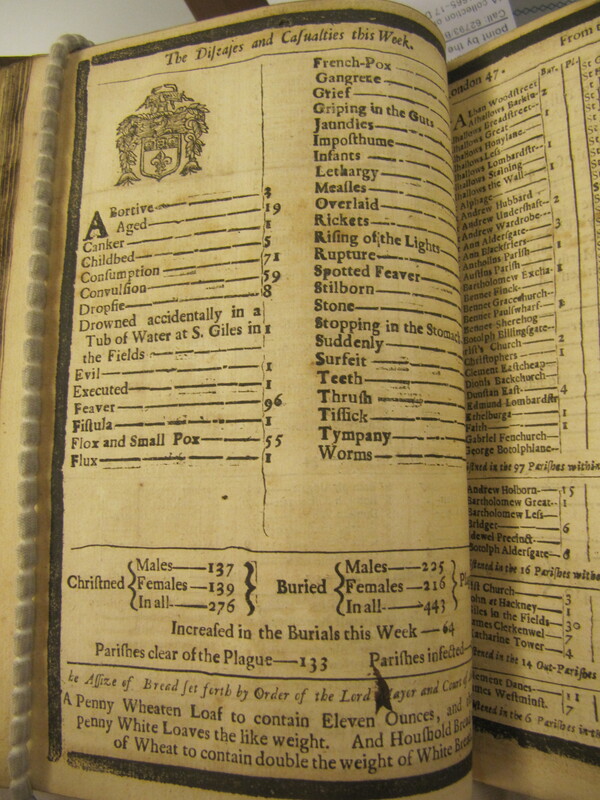 The Diseases and Casualties this Week.
ABortive 3
Aged 19
Canker 1
Childbed 5
Consumption 71
Convulsion 59
Dropsie 8
Drowned accidentally in a
Tub of Water at S. Giles in
the Fields 1
Evil 1
Executed 1
Feaver 96
Fistula 1
Flox and Small Pox 55
Flux 1
French-Pox
Gangrene
Grief
Griping in the Guts
Jaundies
Imposthume
Infants
Lethargy
Measles
Overlaid
Rickets
Rising of the Lights
Rupture
Spotted Feaver
Stilborn
Stone
Stopping in the Stomach
Suddenly
Surfeit
Teeth
Thrush
Tissick
Tympany
Worms
Christned
Males 137
Females 139
In all 276
Buried
Males 225
Females 216
In all 443
Increased in the Burials this Week 64
Parishes clear of the Plague 133 Parishes infected
he Assize of Bread set forth by Order of the Lord Mayor and Court of
A Penny Wheaten Loaf to contain Eleven Ounces, and
Penny White Loaves the like weight. And Houshold Brea
of Wheat to contain double the weight of White Brea
ondon 47. From t
Bur.
ALban Woodstreet
Alhallows Barkin 2
lhallows Breadstreet
lhallows Great 1
lhallows Honylane
lhallows Less
lhallows Lombardstr
lhallows Staining
lhallows the Wall 1
Alphage
Andrew Hubbard
Andrew Undershaft 2
Andrew Wardrobe
Ann Aldersgate 3
Ann Blackfriers
Antholins Parish
Austins Parish
Bartholomew Excha.
Bennet Finck
Bennet Gracechurch
Bennet Paulswharf
Bennet Sherehog
Botolph Billingsgate
rist's Church 2
Christophers 1
Clement Eastcheap
Dionis Backchurch
Dunstan East 4
Edmund Lombardstr
Ethelburga 1
Faith 1
Gabriel Fenchurch
George Botolphlane
istned in the 97 Parishes within
Andrew Holborn 15
Bartholomew Great 1
Bartholomew Less
Bridget 6
idewel Precinct
Botolph Aldersgate
istned in the 16 Parishes witho
ist Church 3
ohn at Hackney 1
iles in the Fields 30
ames Clerkenwel 7
Katharine Tower 4
istened in the 14 Out-Parishes
lement Danes 11
ames Westminst. 7
istened in the 6 Parishes in th